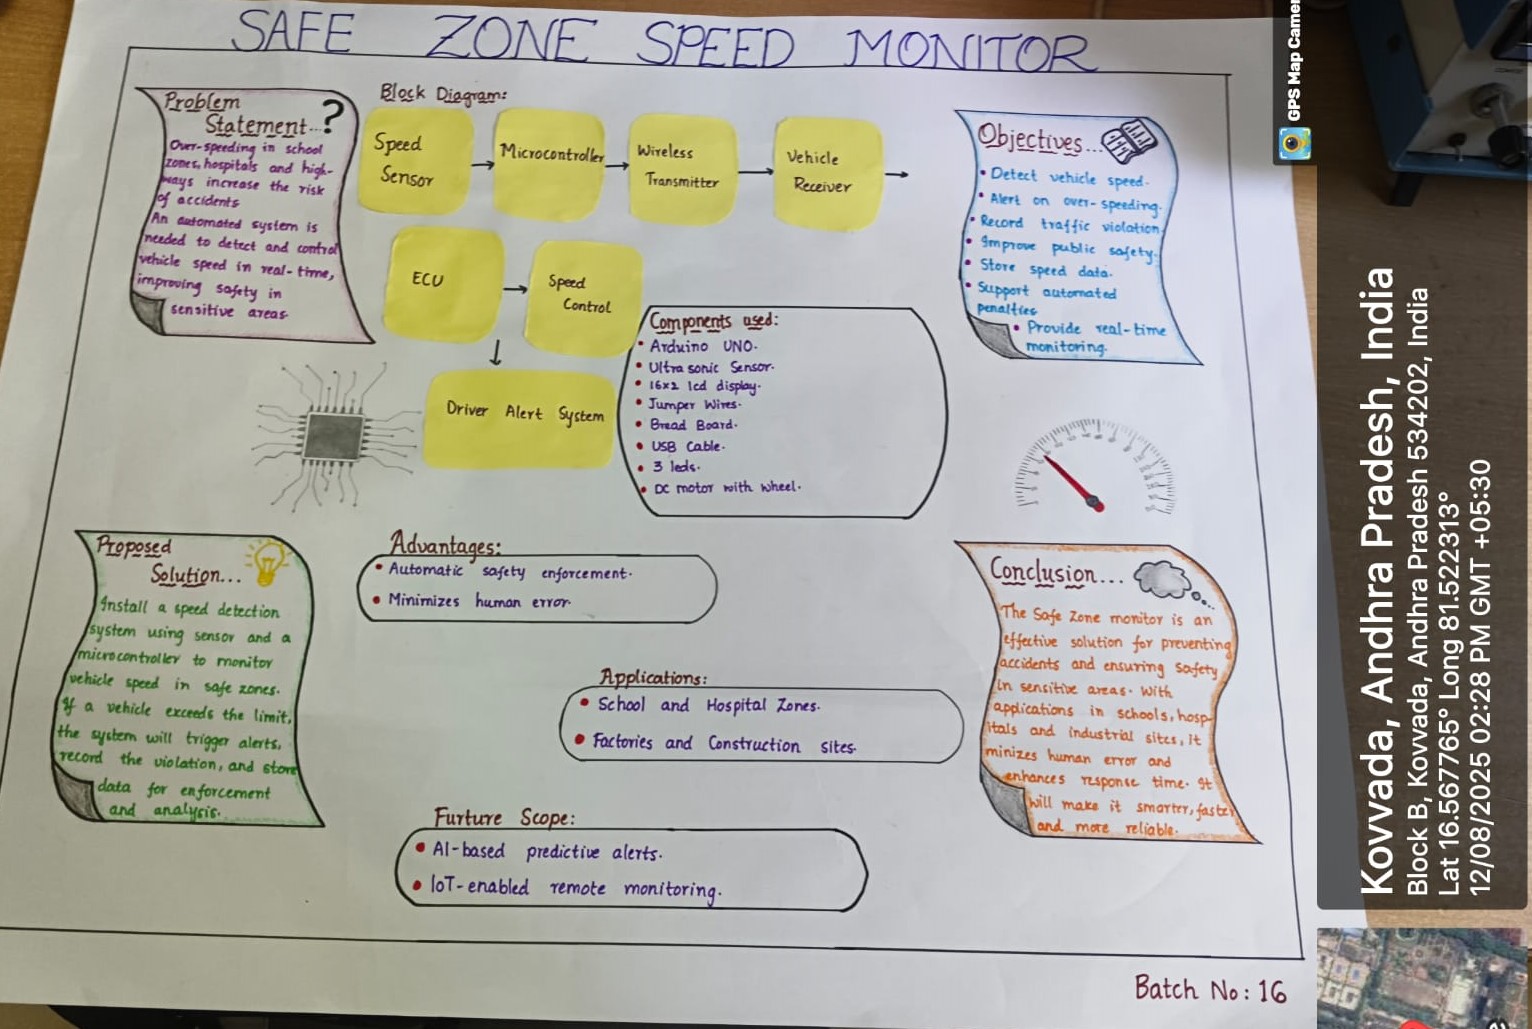 SAFE ZONE SPEED MONITOR
Problem
Statement...?
Over-speeding in school
zones, hospitals and high-
ways increase the risk
of accidents
An automated system is
needed to detect and control
vehicle speed in real-time,
improving safety in
sensitive areas
Block Diagram:
Speed
Sensor
Microcontroller
Wireless
Transmitter
Vehicle
Receiver
ECU
Speed
Control
Driver Alert System
Components used:
• Arduino UNO.
• Ultra sonic Sensor.
• 16x2 lcd display.
• Jumper Wires.
• Bread Board.
• USB Cable.
• 3 leds.
• DC motor with wheel.
Objectives...
• Detect vehicle speed.
• Alert on over-speeding.
• Record traffic violation.
• Improve public safety.
• Store speed data.
• Support automated
penalties
• Provide real-time
monitoring.
Proposed
Solution...
Install a speed detection
system using sensor and a
microcontroller to monitor
vehicle speed in safe zones.
If a vehicle exceeds the limit,
the system will trigger alerts,
record the violation, and store
data for enforcement
and analysis.
Advantages:
• Automatic safety enforcement.
• Minimizes human error.
Applications:
• School and Hospital Zones.
• Factories and Construction sites.
Furture Scope:
• AI-based predictive alerts.
• IoT-enabled remote monitoring.
Conclusion...
The Safe Zone monitor is an
effective solution for preventing
accidents and ensuring safety
in sensitive areas. With
applications in schools, hosp-
itals and industrial sites, it
minizes human error and
enhances response time. It
will make it smarter, faster
and more reliable.
Batch No: 16
GPS Map Camera
Kovvada, Andhra Pradesh, India
Block B, Kovvada, Andhra Pradesh 534202, India
Lat 16.567765° Long 81.522313°
12/08/2025 02:28 PM GMT +05:30